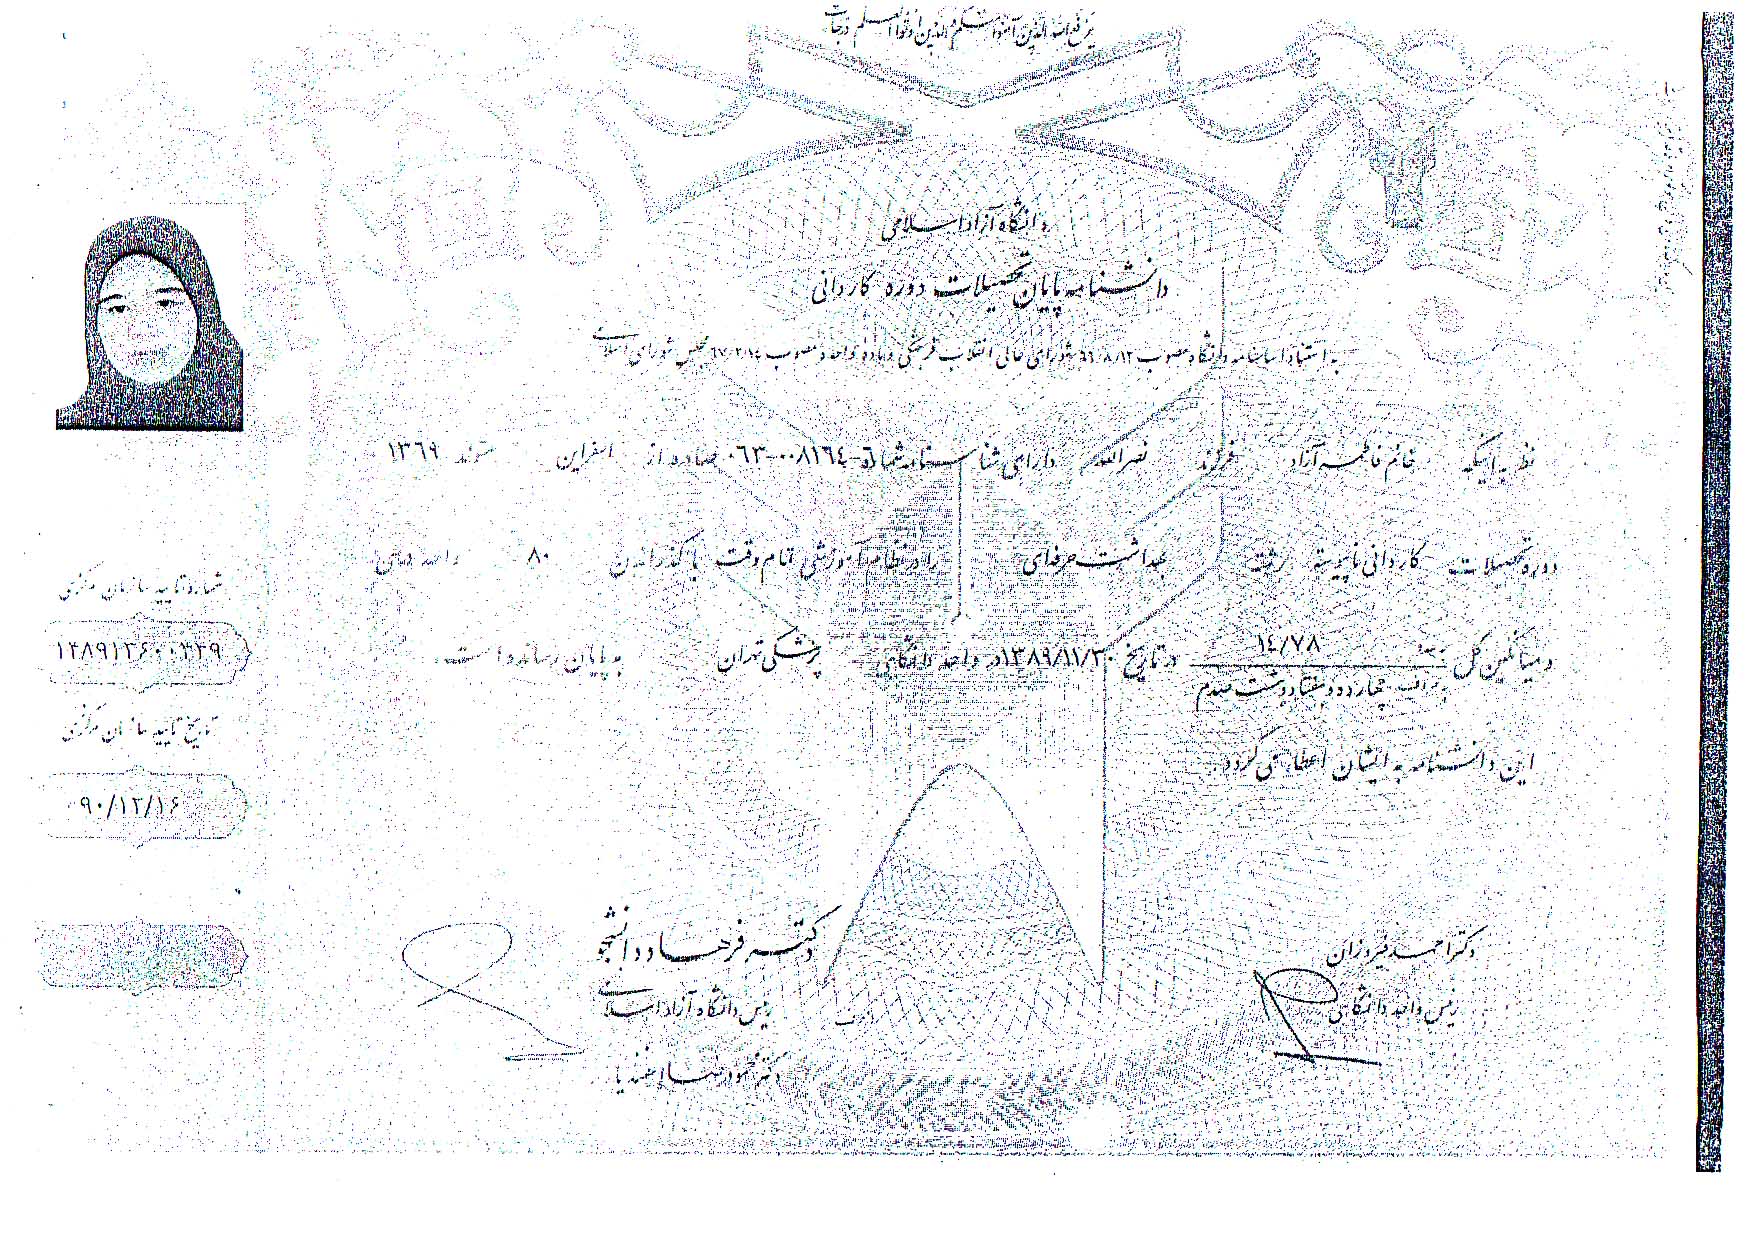 یرفع الله الذین آمنوا منکم والذین اوتوا العلم درجات
دانشگاه آزاد اسلامی
دانشنامه پایان تحصیلات دوره کاردانی
به استناد اساسنامه دانشگاه مصوب شورای عالی انقلاب فرهنگی و ماده واحده مصوب مجلس شورای اسلامی
نظر به اینکه خانم فاطمه آزاد فرزند نصرالله دارای شناسنامه شماره ۰۶۳-۰۰۸۱۶۴-۶ صادره از اسفراین متولد ۱۳۶۹
دوره تحصیلات کاردانی ناپیوسته رشته بهداشت حرفه‌ای را در نظام آموزشی تمام وقت با گذراندن ۸۰ واحد درسی
و میانگین کل به عدد ۱۴/۷۸ در تاریخ ۱۳۸۹/۱۱/۳۰ در واحد دانشگاهی پزشکی تهران به پایان رسانده است.
به حروف چهارده و هفتاد و هشت صدم
این دانشنامه به ایشان اعطا می گردد.
شماره تایید سازمان مرکزی
۱۲۸۹۱۳۶۰۰۳۳۹
تاریخ تایید سازمان مرکزی
۹۰/۱۲/۱۶
دکتر احمد فیروزان
رئیس واحد دانشگاهی
دکتر فرهاد دانشجو
رئیس دانشگاه آزاد اسلامی